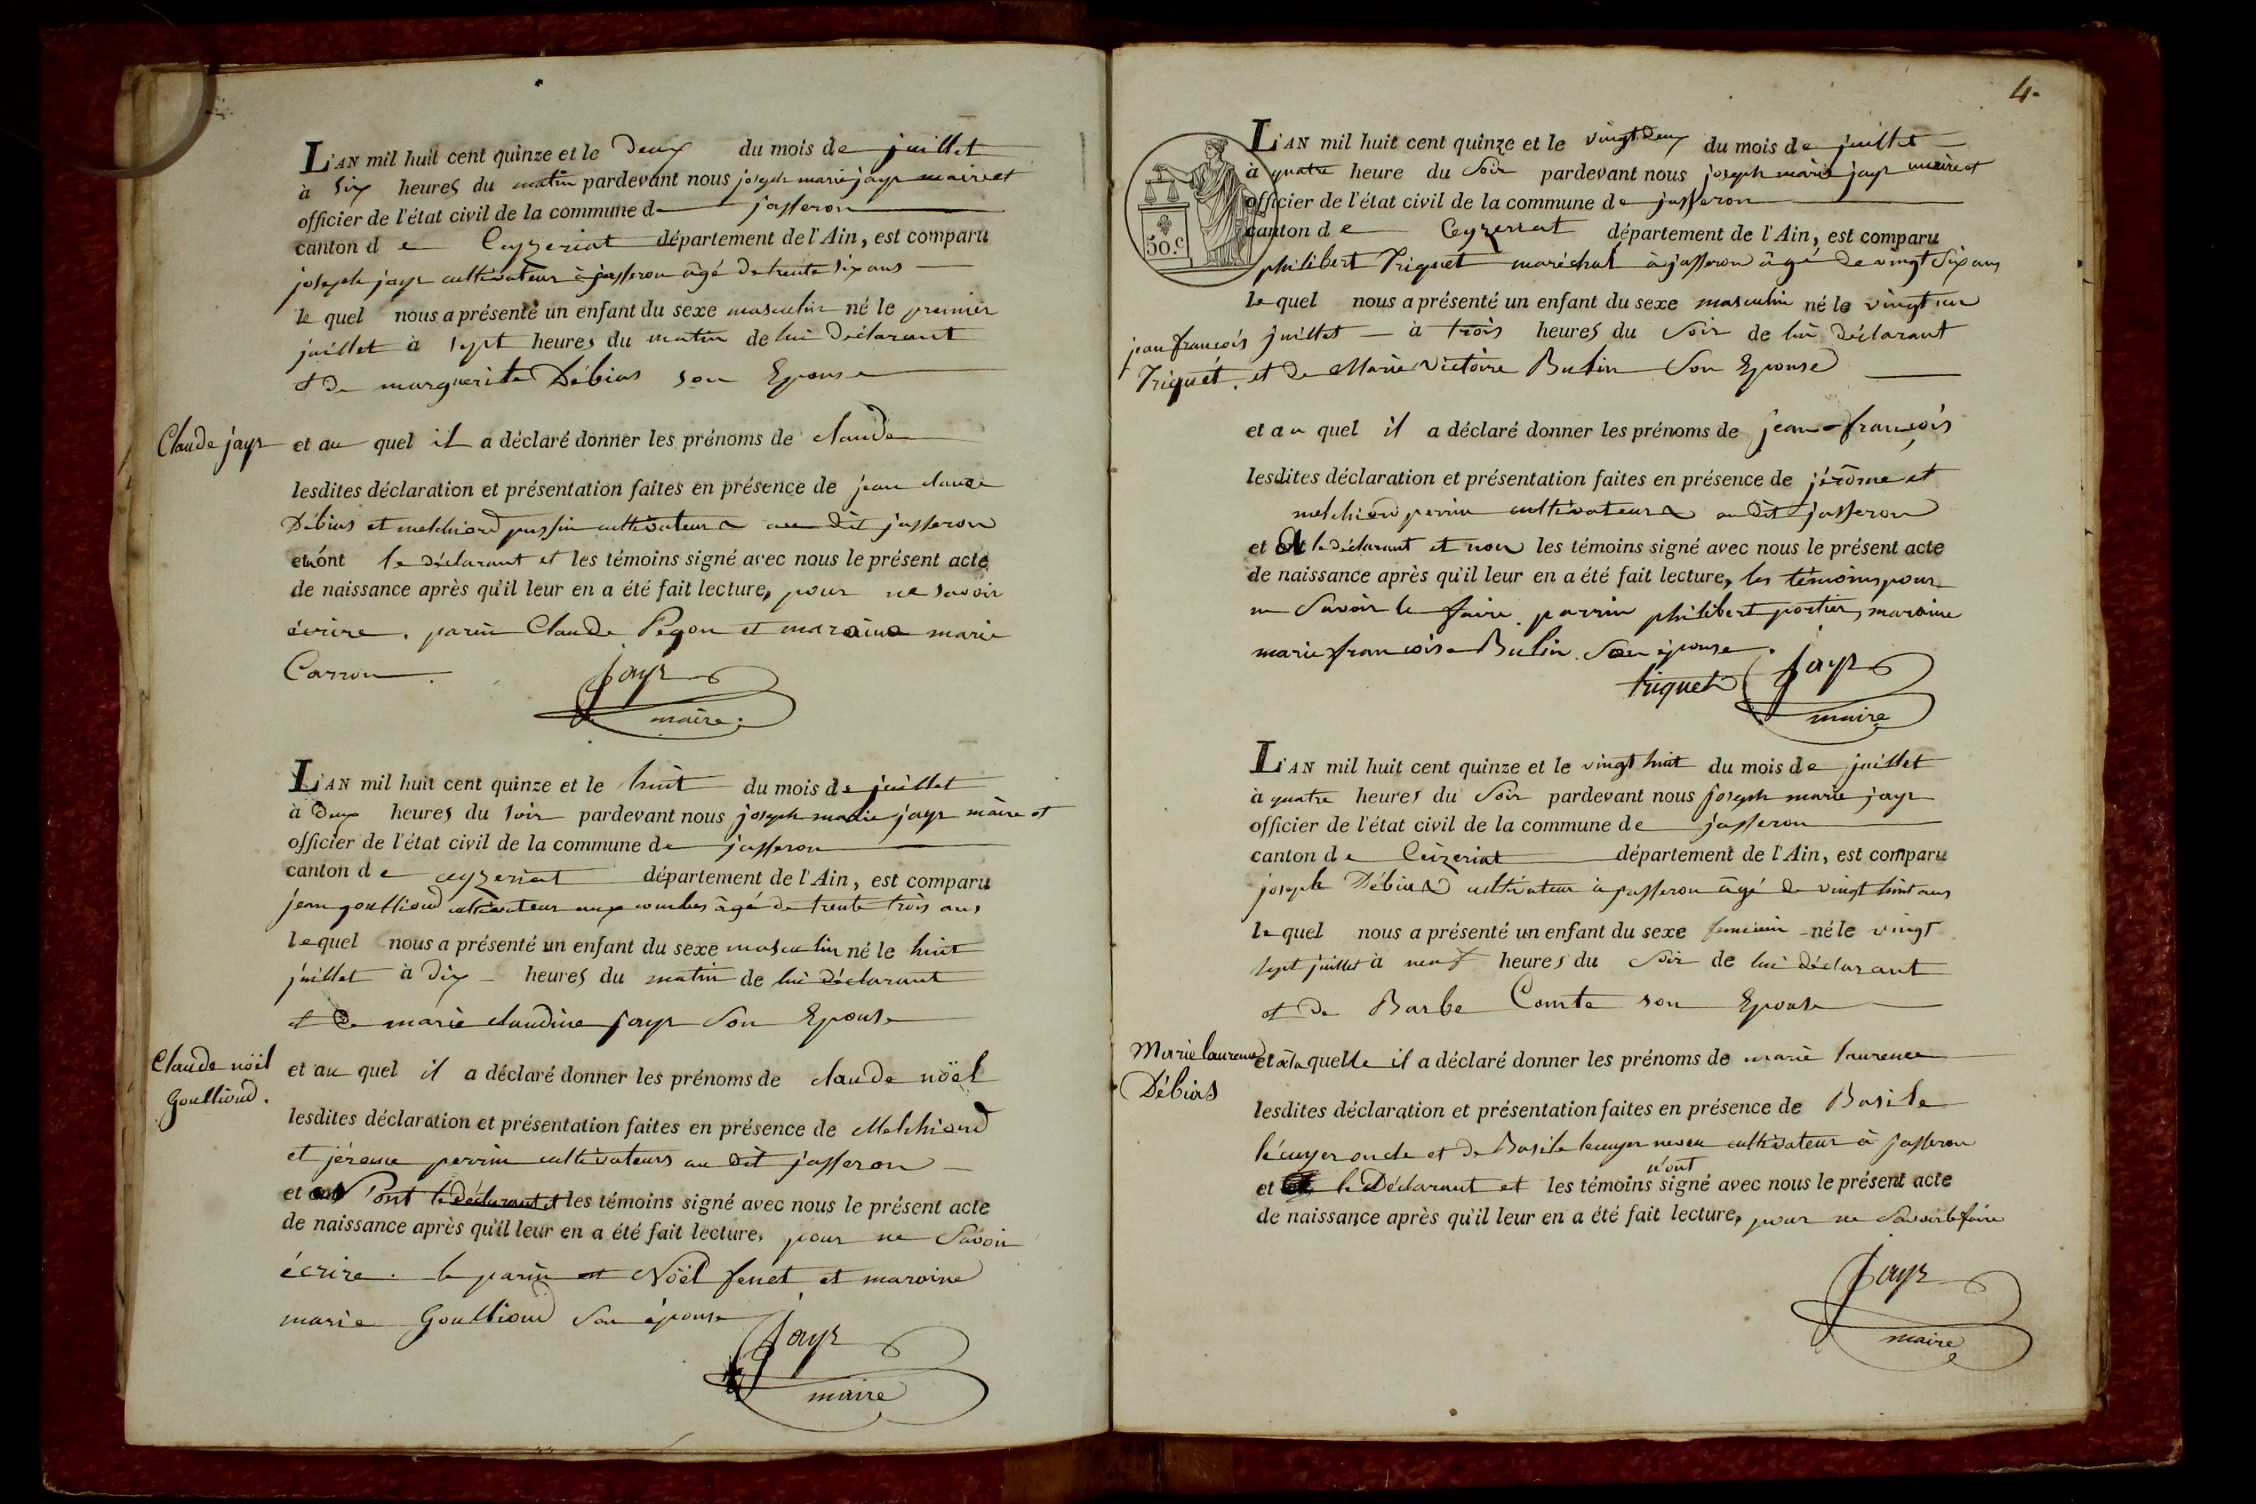 L'AN mil huit cent quinze et le deux du mois de juillet
à six heures du matin pardevant nous joseph marie jayr maire et
officier de l'état civil de la commune de jasseron
canton de Ceyzeriat département de l'Ain, est comparu
joseph jayr cultivateur à jasseron âgé de trente six ans
le quel nous a présenté un enfant du sexe masculin né le premier
juillet à sept heures du matin de lui déclarant
et de marguerite Débias son Epouse
Claude jayr
et au quel il a déclaré donner les prénoms de claude
lesdites déclaration et présentation faites en présence de jean claude
Débias et melchiord cultivateurs au dit jasseron
et n'ont le déclarant et les témoins signé avec nous le présent acte
de naissance après qu'il leur en a été fait lecture, pour ne savoir
écrire. parin Claude Pegon et maraine marie
Carron.
Jayr
maire.
L'AN mil huit cent quinze et le huit du mois de juillet
à deux heures du soir pardevant nous joseph marie jayr maire et
officier de l'état civil de la commune de jasseron
canton de ceyzeriat département de l'Ain, est comparu
jean goullioud cultivateur aux combes âgé de trente trois ans
le quel nous a présenté un enfant du sexe masculin né le huit
juillet à dix heures du matin de lui déclarant
et de marie claudine jayr son Epouse
Claude noël
Goullioud.
et au quel il a déclaré donner les prénoms de claude noël
lesdites déclaration et présentation faites en présence de Melchiord
et jérome perrin cultivateurs au dit jasseron
et n'ont le déclarant et les témoins signé avec nous le présent acte
de naissance après qu'il leur en a été fait lecture, pour ne savoir
écrire. le parin est Noël fenet et maraine
marie Goullioud son épouse
Jayr
maire
4.
L'AN mil huit cent quinze et le vingt deux du mois de juillet
à quatre heure du soir pardevant nous joseph marie jayr maire et
officier de l'état civil de la commune de jasseron
canton de Ceyzeriat département de l'Ain, est comparu
50.c
philibert Triquet maréchal à jasseron âgé de vingt six ans
le quel nous a présenté un enfant du sexe masculin né le vingt un
juillet à trois heures du soir de lui déclarant
jean françois
Triquét.
et de Marie Victoire Bulin son Epouse
et au quel il a déclaré donner les prénoms de jean-françois
lesdites déclaration et présentation faites en présence de jérôme et
melchiord perrin cultivateurs au dit jasseron
et ont le déclarant et non les témoins signé avec nous le présent acte
de naissance après qu'il leur en a été fait lecture, les témoins pour
ne savoir le faire. parrin philibert portier, maraine
marie françoise Bulin son épouse.
triquet Jayr
maire
L'AN mil huit cent quinze et le vingt huit du mois de juillet
à quatre heures du soir pardevant nous joseph marie jayr
officier de l'état civil de la commune de jasseron
canton de Ceizeriat département de l'Ain, est comparu
joseph Débias cultivateur à jasseron âgé de vingt huit ans
le quel nous a présenté un enfant du sexe feminin né le vingt
sept juillet à neuf heures du soir de lui déclarant
et de Barbe Comte son Epouse
Marie laurence
Débias
et à la quelle il a déclaré donner les prénoms de marie laurence
lesdites déclaration et présentation faites en présence de Basile
lécuyer oncle et de Basile lecuyer neveu cultivateur à jasseron
n'ont
et le Déclarant et les témoins signé avec nous le présent acte
de naissance après qu'il leur en a été fait lecture, pour ne savoir le faire
Jayr
maire